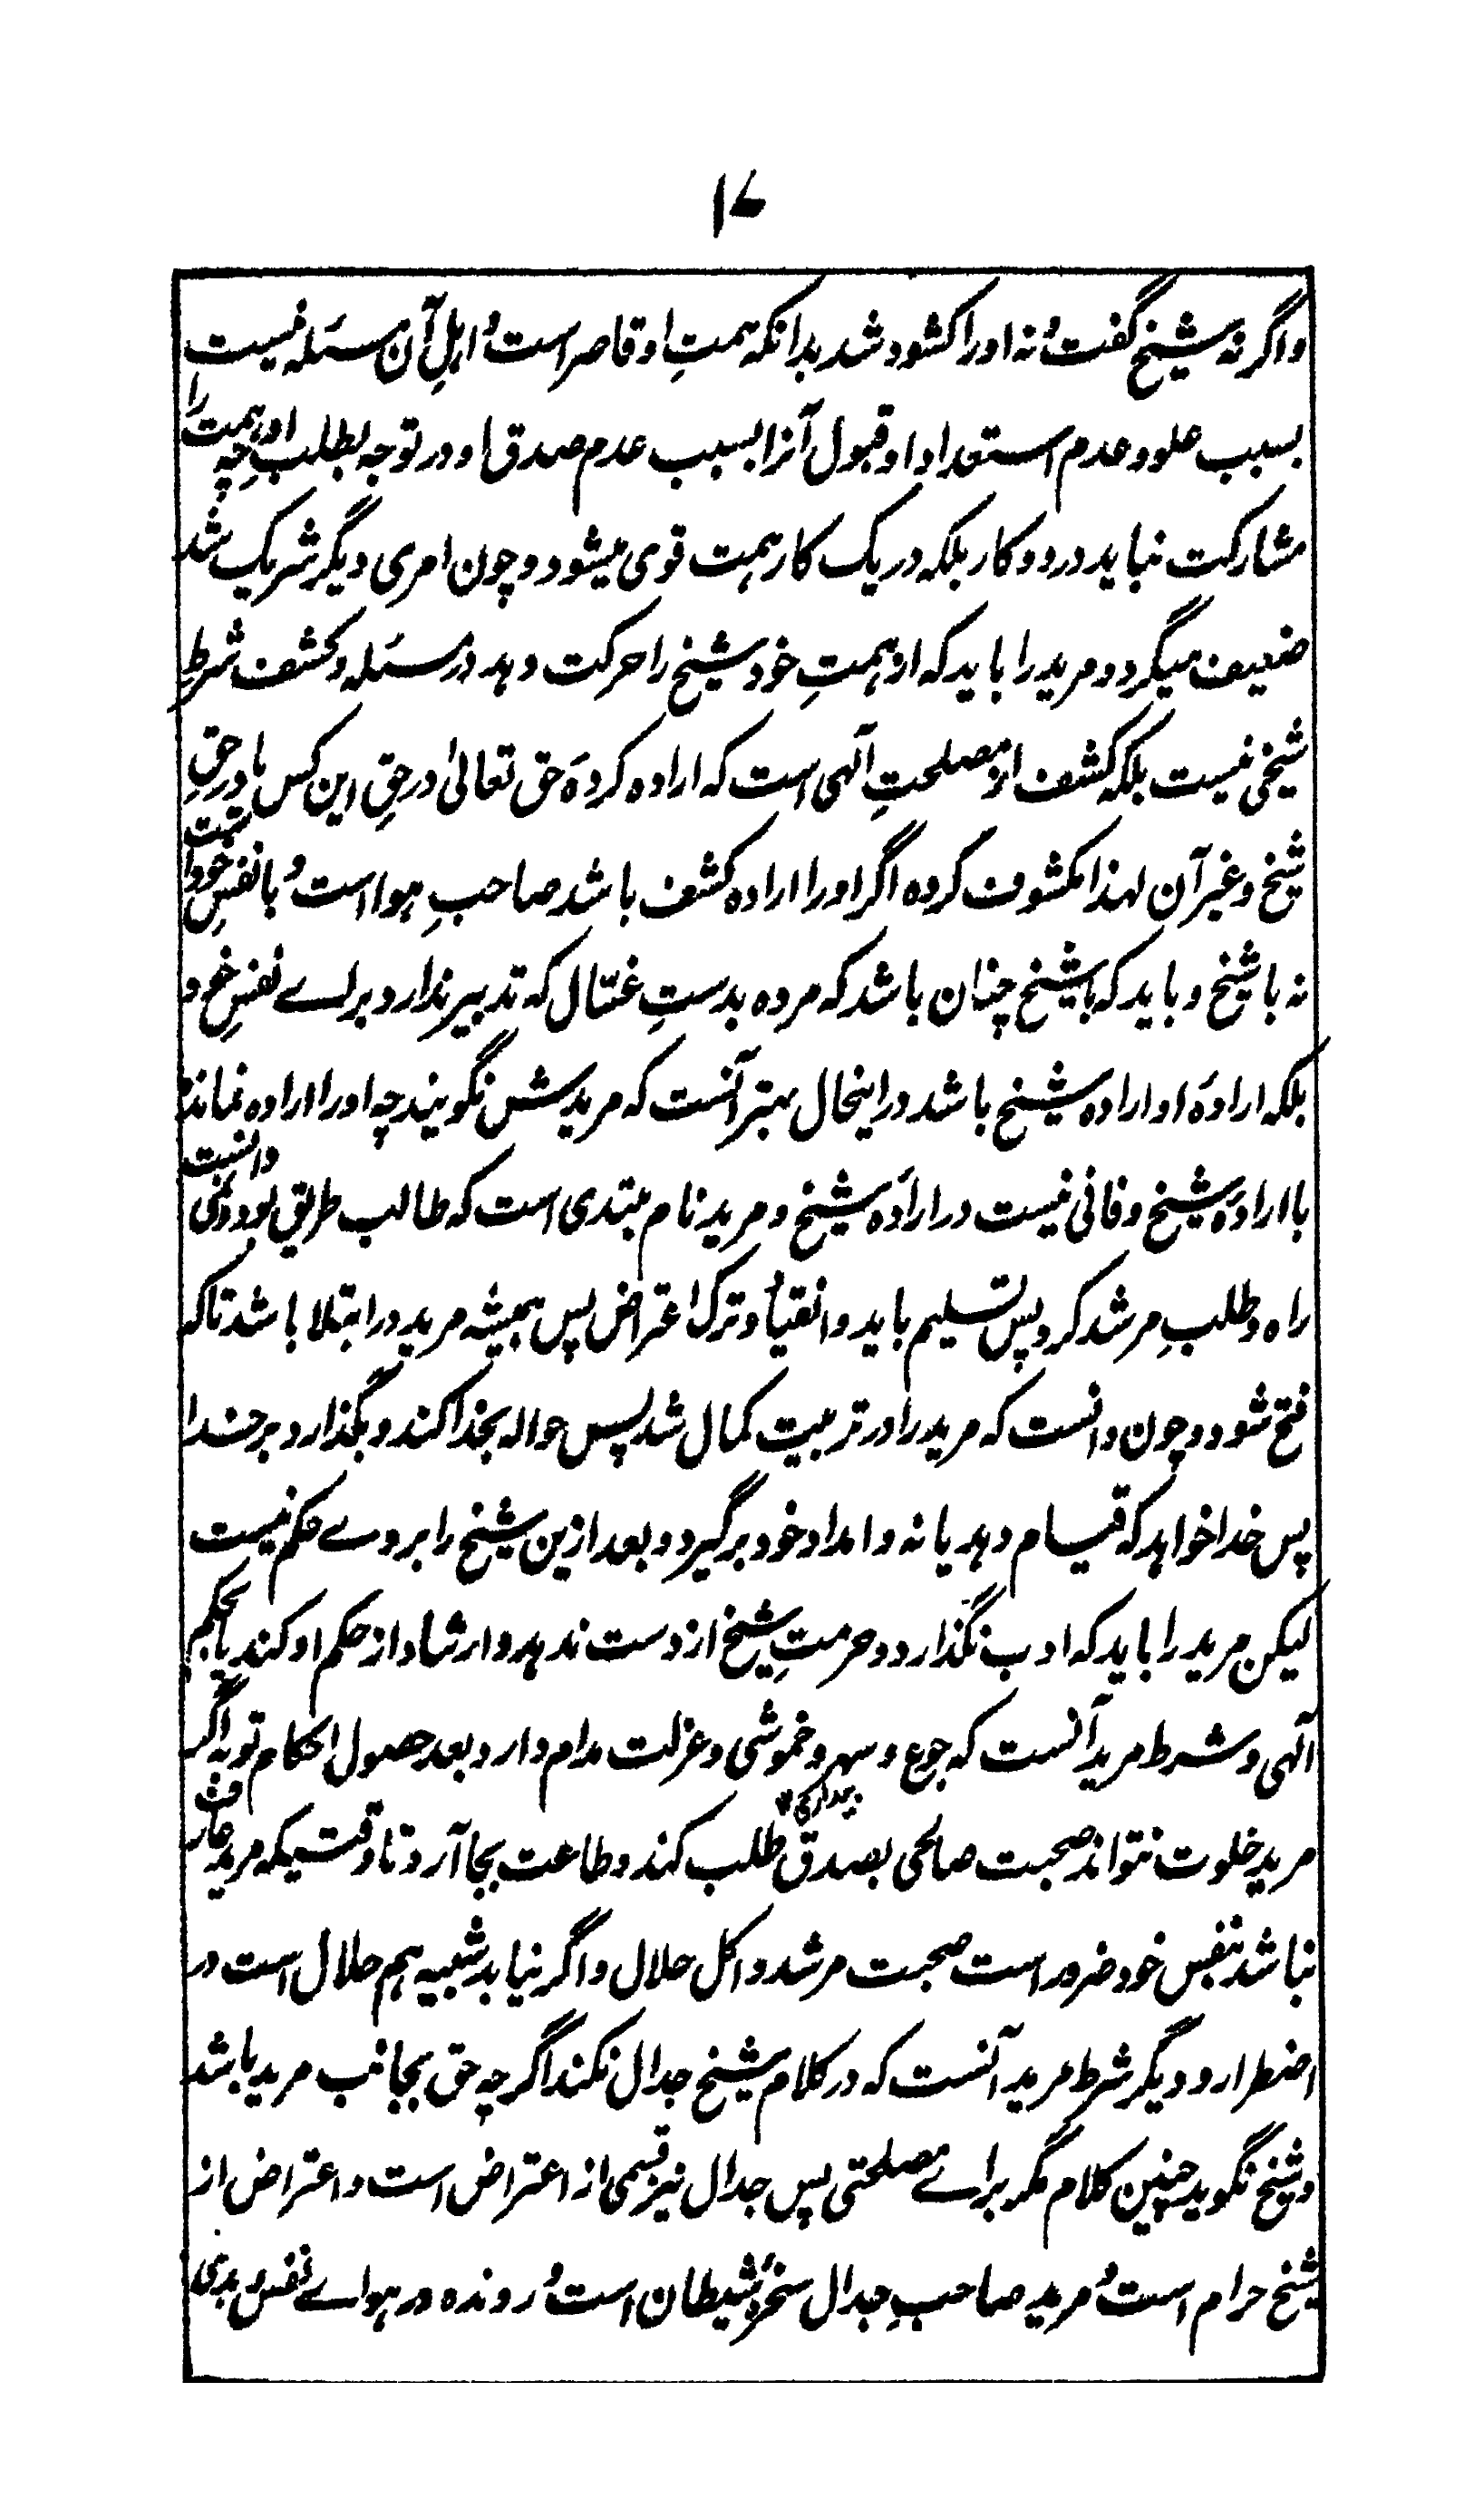 ۱۷
واگر نه شیخ گفت و نه او را کشود شد بدانکه همتِ او قاصر است و اہلِ آن مسئله نیست
بسبب علو و عدم استعداد او قبول آنرا بسبب عدم صدق او در توجه بطلب او چه ہمت را
مشارکت نباید در دو کار بلکه در یک کار ہمت قوی میشود و چون امری دیگر شریک شد
ضعیف میگردد و مرید را باید که از ہمتِ خود شیخ را حرکت دہد در مسئله و کشف شرطِ
شیخی نیست بلکه کشف از مصلحتِ آلہی است که اراده کردۂ حق تعالیٰ در حقِ این کس یا در حقِ
شیخ و غیر آن لہذا مکشوف کرده اگر او را اراده کشف باشد صاحبِ ہوا است و بانفسِ خود است
نه با شیخ و باید که با شیخ چنان باشد که مرده بدستِ غسّال که تدبیر ندارد براے نفسِ خود
بلکه ارادۂ او اراده شیخ باشد در اینحال بہتر آنست که مریدش نگویند چه او را اراده نماند
با ارادۂ شیخ و فانی نیست در ارادۂ شیخ و مرید نام مبتدی است که طالب طریق بود و دانست
راه و طلبِ مرشد کرد پس تسلیم باید و انقیاد و ترک اعتراض پس ہمیشه مرید در ابتلا باشد تا که
فتح شود و چون دانست که مرید را در تربیت کمال شد پس حواله بخدا کند و بگذارد بر خدا
پس خدا خواہد که قیام دہد یا نه و امداد خود برگیرد و بعد ازین شیخ را بر وے حکم نیست
لیکن مرید را باید که ادب نگذارد و حرمتِ شیخ از دست ندہد و ارشاد از حکم او کند یا بحکم
آلہی و شرط مرید آنست که جوع و سہر و خموشی و عزلت مدام دارد بعد حصول احکام توبه اگر
مرید خلوت نتواند صحبت صالحی بصدق طلب کند و طاعت بجا آرد تا وقتیکه مرید عارف
نباشد بنفس خود ضرور است صحبت مرشد و اکل حلال و اگر نیابد شبیه ہم حلال است در
اضطرار و دیگر شرط مرید آنست که در کلام شیخ جدال نکند اگرچه حق بجانب مرید باشد
و شیخ نگوید چنین کلام مگر براے مصلحتی پس جدال نیز قسمی از اعتراض است و اعتراض از
شیخ حرام است و مرید صاحبِ جدال سخرۂ شیطان است و رونده در ہواے نفس بدی